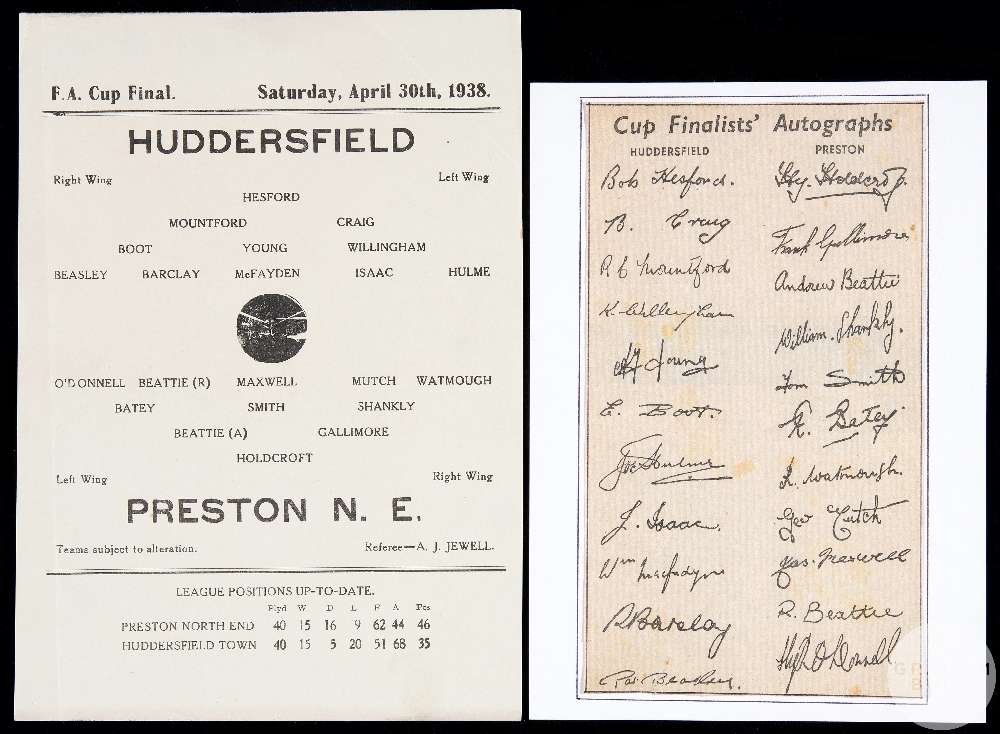 F.A. Cup Final. Saturday, April 30th, 1938.
HUDDERSFIELD
Right Wing Left Wing
HESFORD
MOUNTFORD CRAIG
BOOT YOUNG WILLINGHAM
BEASLEY BARCLAY McFAYDEN ISAAC HULME
O'DONNELL BEATTIE (R) MAXWELL MUTCH WATMOUGH
BATEY SMITH SHANKLY
BEATTIE (A) GALLIMORE
HOLDCROFT
Left Wing Right Wing
PRESTON N. E.
Teams subject to alteration. Referee—A. J. JEWELL.
LEAGUE POSITIONS UP-TO-DATE.
Plyd W D L F A Pts
PRESTON NORTH END 40 15 16 9 62 44 46
HUDDERSFIELD TOWN 40 15 5 20 51 68 35
Cup Finalists' Autographs
HUDDERSFIELD PRESTON
Bob Hesford. Hy. Holdcroft.
B. Craig Frank Gallimore
R C Mountford Andrew Beattie
K Willingham William Shankly.
A Young Tom Smith
E. Boot. R. Batey
Joe Hulme J. Watmough.
J. Isaac. Geo Mutch
Wm Macfadyen Jas. Maxwell
R Barclay R. Beattie
Pat Beasley. Hugh O'Donnell